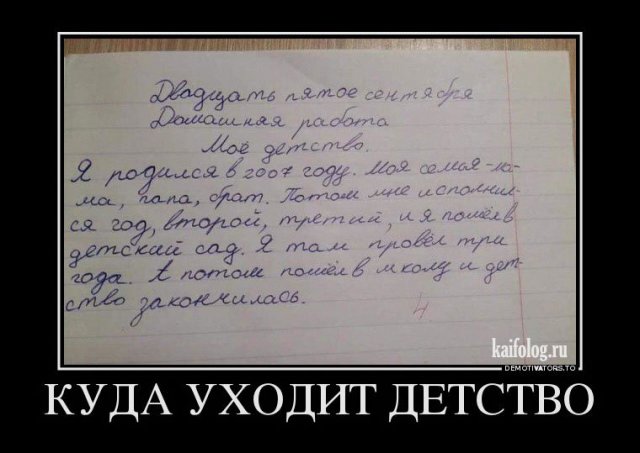 Двадцать пятое сентября
Домашняя работа
Моё детство.
Я родился в 2007 году. Моя семья -ма-
ма, папа, брат. Потом мне исполнил-
ся год, второй, третий, и я пошёл в
детский сад. Я там провёл три
года. А потом пошёл в школу и дет-
ство закончилась.
4
kaifolog.ru
DEMOTIVATORS.TO
КУДА УХОДИТ ДЕТСТВО